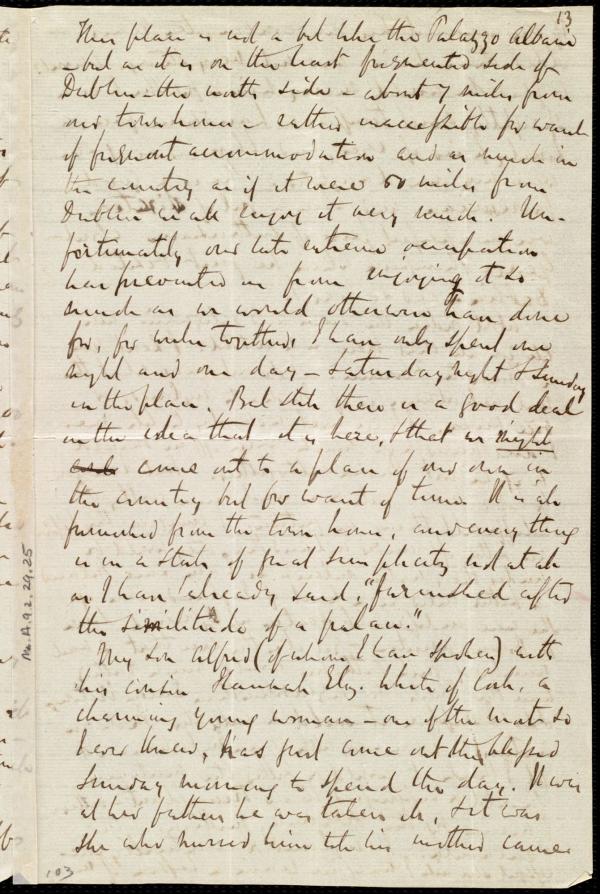 13
This place is not a bit like the Palazzo Albani
- but as it is on the least frequented side of
Dublin - the north side - about 7 miles from
our town house - rather inaccessible for want
of frequent accommodation and as much in
the country as if it were 50 miles from
Dublin we all enjoy it very much. Un-
fortunately our late extreme occupation
has prevented us from enjoying it so
much as we would otherwise have done
for, for weeks together I have only spent one
night and one day - Saturday night & Sunday
in the place. But still there is a good deal
in the idea that it is here, & that we might
come out to a place of our own in
the country but for want of time. It is all
furnished from the town house, and every thing
is in a state of great simplicity not at all
as I have already said, "furnished after
the similitude of a palace."
My son Alfred (of whom I have spoken) with
his cousin Hannah Eliz. White of Cork, a
charming young woman - one of the most so
I ever knew, has just come out this blessed
Sunday morning to spend the day. It was
at her father's he was taken ill, & it was
she who nursed him till his mother came
Ms. A. 9. 2. 29. 25
103